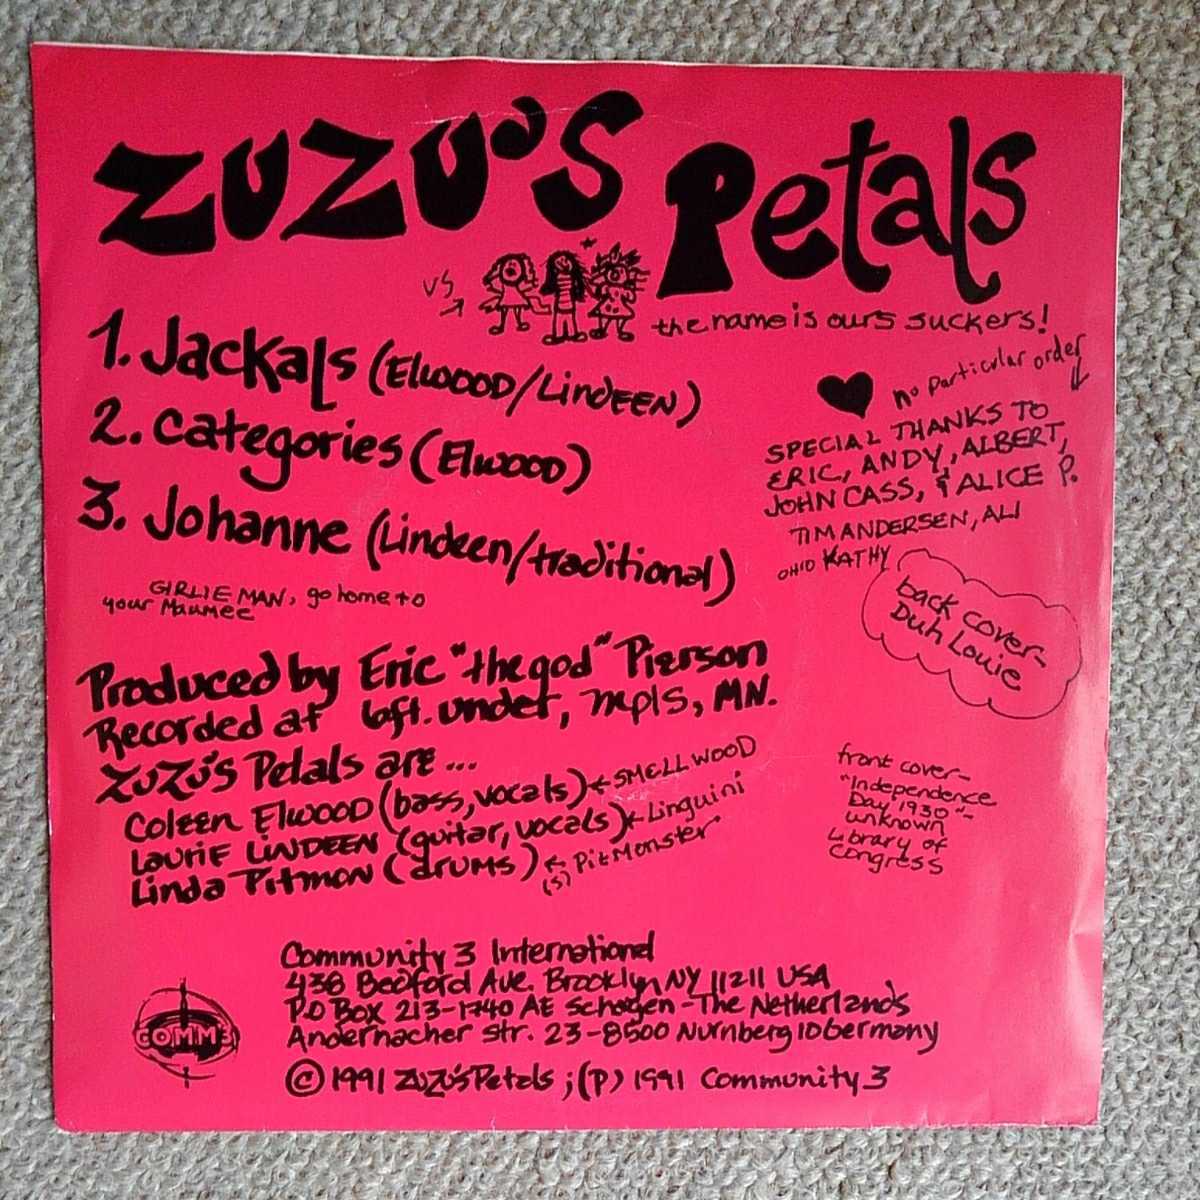 ZUZU'S Petals
VS
the name is ours suckers!
1. Jackals (Elwood/Lindeen)
2. Categories (Elwood)
3. Johanne (Lindeen/traditional)
GIRLIE MAN, go home to
your Maumee
no particular order
SPECIAL THANKS TO
ERIC, ANDY, ALBERT,
JOHN CASS, & ALICE P.
TIM ANDERSEN, ALI
OHIO KATHY
back cover-
Duh Louie
Produced by Eric "the god" Pierson
Recorded at 6ft. under, mpls, MN.
ZuZu's Petals are...
Coleen Elwood (bass, vocals) ← SMELLWOOD
Laurie Lindeen (guitar, vocals) ← Linguini
Linda Pitmon (drums) ← (s) PitMonster
front cover-
"Independence
Day 1930"-
unknown
Library of
Congress
Community 3 International
438 Bedford Ave. Brooklyn NY 11211 USA
P.O Box 213-1740 AE Schagen-The Netherlands
Andernacher Str. 23-8500 Nurnberg 10 Germany
COMM3
© 1991 ZUZU'S Petals; (P) 1991 Community 3